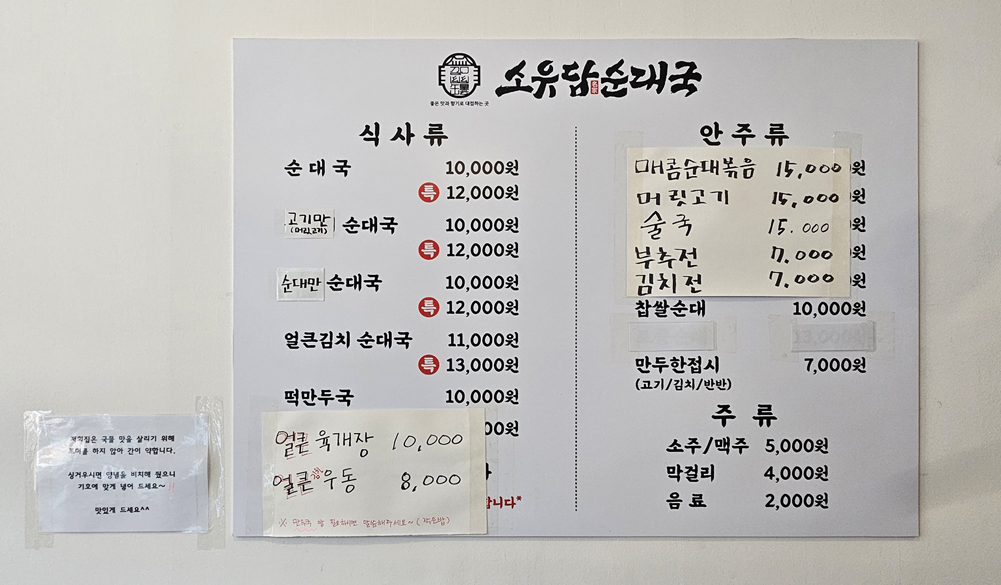 좋은 맛과 향기로 대접하는 곳
소유담순대국
식사류
순대국 10,000원
특 12,000원
고기만 순대국 10,000원
(머릿고기)
특 12,000원
순대만 순대국 10,000원
특 12,000원
얼큰김치 순대국 11,000원
특 13,000원
떡만두국 10,000원
00원
얼큰 육개장 10,000
얼큰 우동 8,000
니다*
안주류
매콤순대볶음 15,000원
머릿고기 15,000원
술국 15.000원
부추전 7.000원
김치전 7.000
찹쌀순대 10,000원
만두한접시 7,000원
(고기/김치/반반)
주류
소주/맥주 5,000원
막걸리 4,000원
음료 2,000원
국물 맛을 살리기 위해
하지 않아 간이 약합니다.
싱거우시면 양념을 비치해 뒀으니
기호에 맞게 넣어 드세요~
맛있게 드세요^^